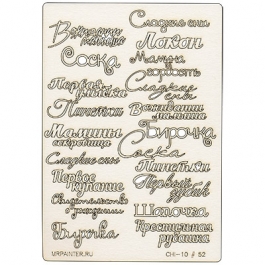 В ожидании
малыша
Соска
Первая
улыбка
Пинетки
Мамины
сокровища
Сладкие сны
Первое
купание
Свидетельство
о рождении
Бирочка
Сладкие сны
Локон
Мамина
гордость
Сладкие
сны
В ожидании
малыша
Бирочка
Соска
Пинетки
Первый
зубик
Шапочка
Крестильная
рубашка
MRPAINTER.RU
CHI-10 # 52